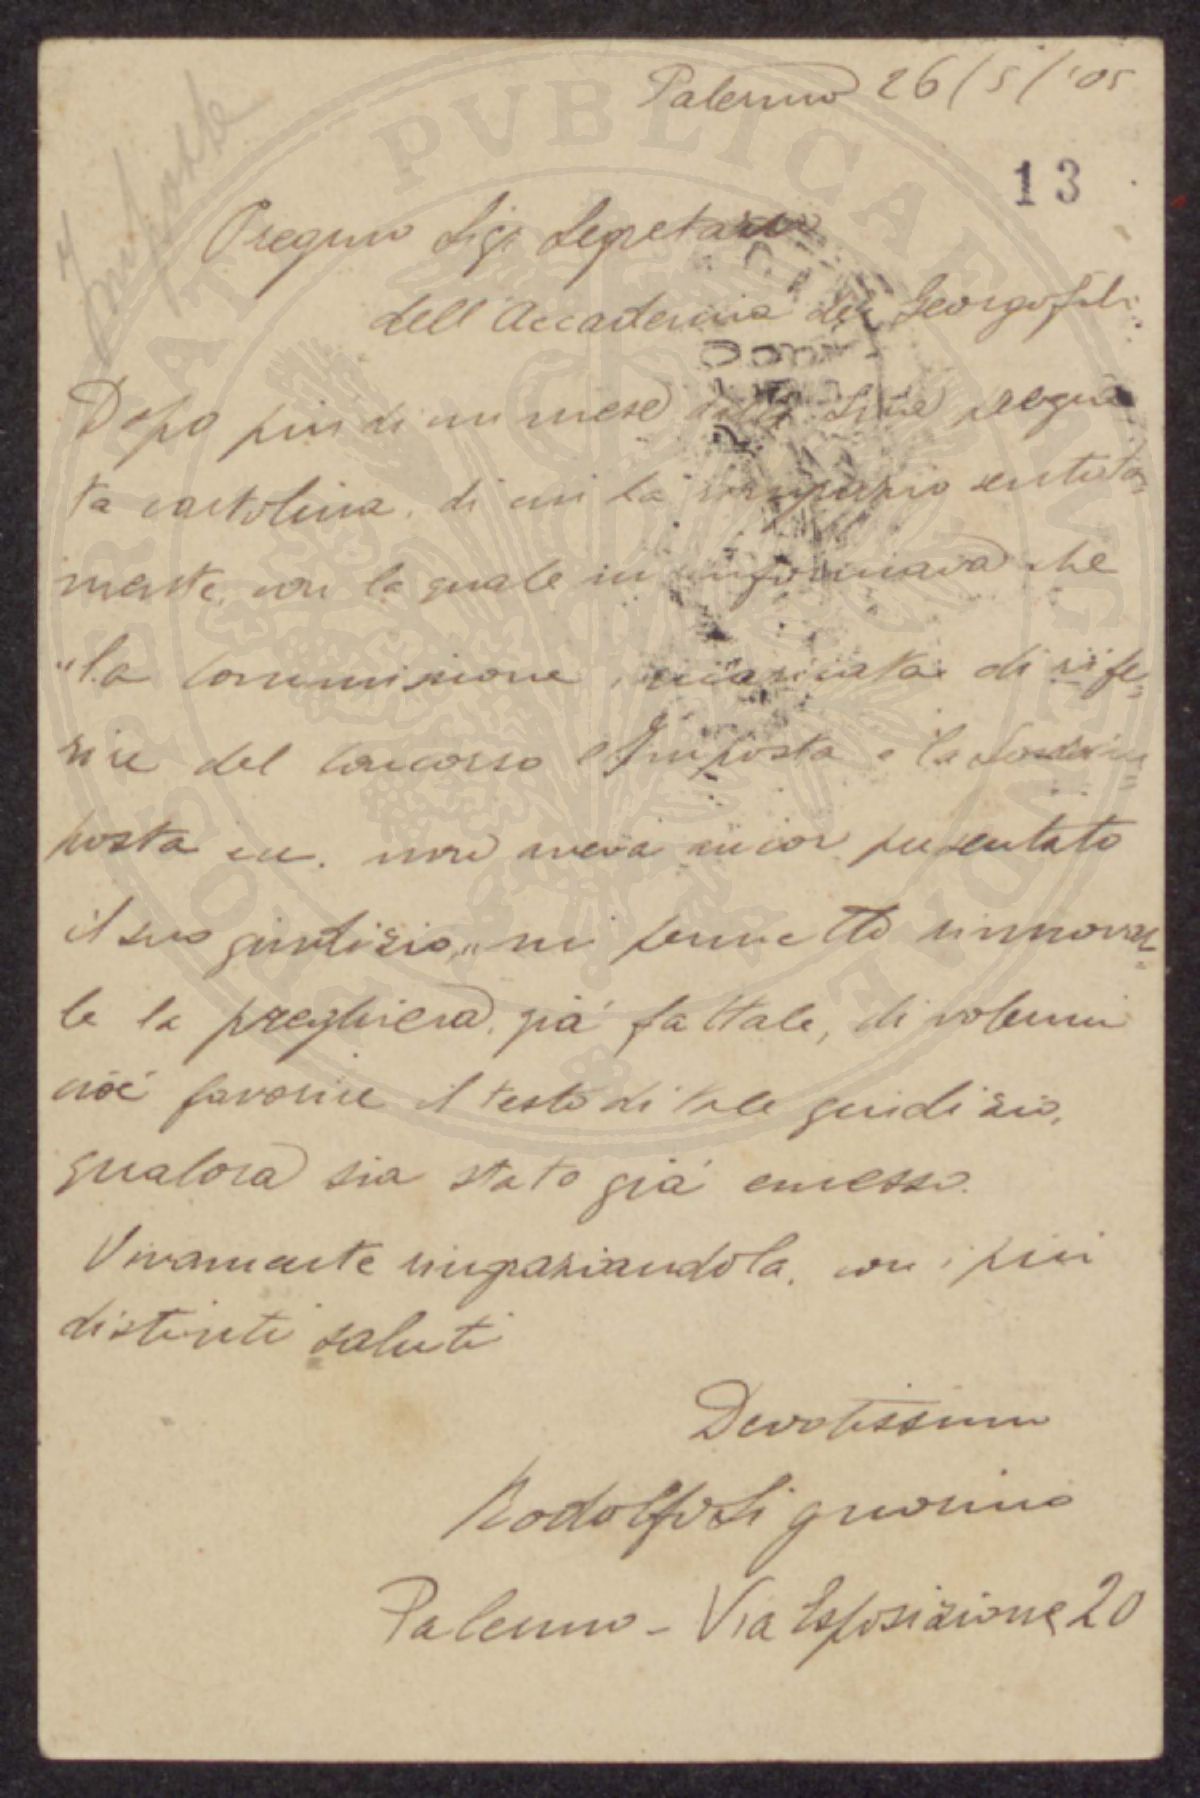 Palermo 26/5/'05
13
Imposte
Pregmo Sigr Segretario
dell'Accademia dei Georgofili.
Dopo più di un mese dalla Sua pregia
ta cartolina, di cui la ringrazio sentita=
mente, con la quale mi informava che
"la Commissione, incaricata di rife=
rire del Concorso l'Imposta e la Sovraim=
posta ecc. non aveva ancor presentato
il suo giudizio", mi permetto rinnovar=
le la preghiera, già fattale, di volermi
cioè favorire il testo di tale giudizio,
qualora sia stato già emesso.
Vivamente ringraziandola, con i più
distinti saluti
Devotissimo
Rodolfo Signorino
Palermo - Via Esposizione, 20